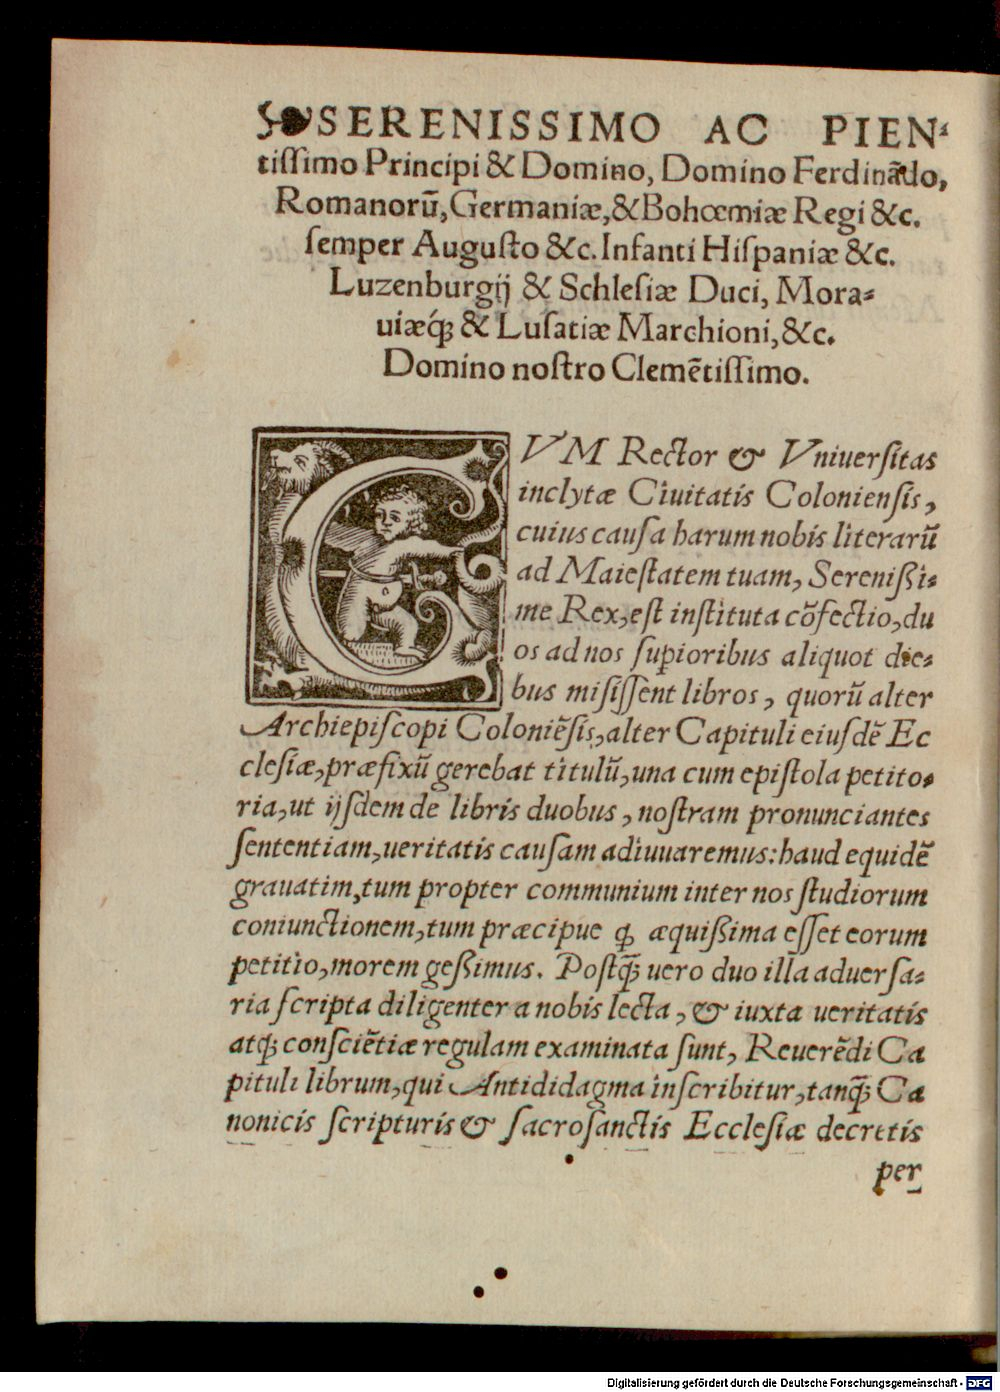 SERENISSIMO AC PIEN⸗
tiſſimo Principi & Domino, Domino Ferdinādo,
Romanorū, Germaniæ, & Bohœmiæ Regi &c.
ſemper Auguſto &c. Infanti Hiſpaniæ &c.
Luzenburgij & Schleſiæ Duci, Mora⸗
uiæq́ꝫ & Luſatiæ Marchioni, &c.
Domino noſtro Clemētiſſimo.
CVM Rector & Vniuerſitas
inclytæ Ciuitatis Colonienſis,
cuius cauſa harum nobis literarū
ad Maieſtatem tuam, Serenißi⸗
me Rex, eſt inſtituta cōfectio, du
os ad nos ſuꝑioribus aliquot die⸗
bus miſiſſent libros, quorū alter
Archiepiſcopi Coloniēſis, alter Capituli eiuſdē Ec
cleſiæ, præfixū gerebat titulū, una cum epiſtola petito⸗
ria, ut ijſdem de libris duobus, noſtram pronunciantes
ſententiam, ueritatis cauſam adiuuaremus: haud equidē
grauatim, tum propter communium inter nos ſtudiorum
coniunctionem, tum præcipue ꝙ æquißima eſſet eorum
petitio, morem geßimus. Poſtq̄ꝫ uero duo illa aduerſa⸗
ria ſcripta diligenter a nobis lecta, & iuxta ueritatis
atqꝫ conſciētiæ regulam examinata ſunt, Reuerēdi Ca
pituli librum, qui Antididagma inſcribitur, tanq̄ꝫ Ca
nonicis ſcripturis & ſacroſanctis Eccleſiæ decretis
per
Digitalisierung gefördert durch die Deutsche Forschungsgemeinschaft - DFG